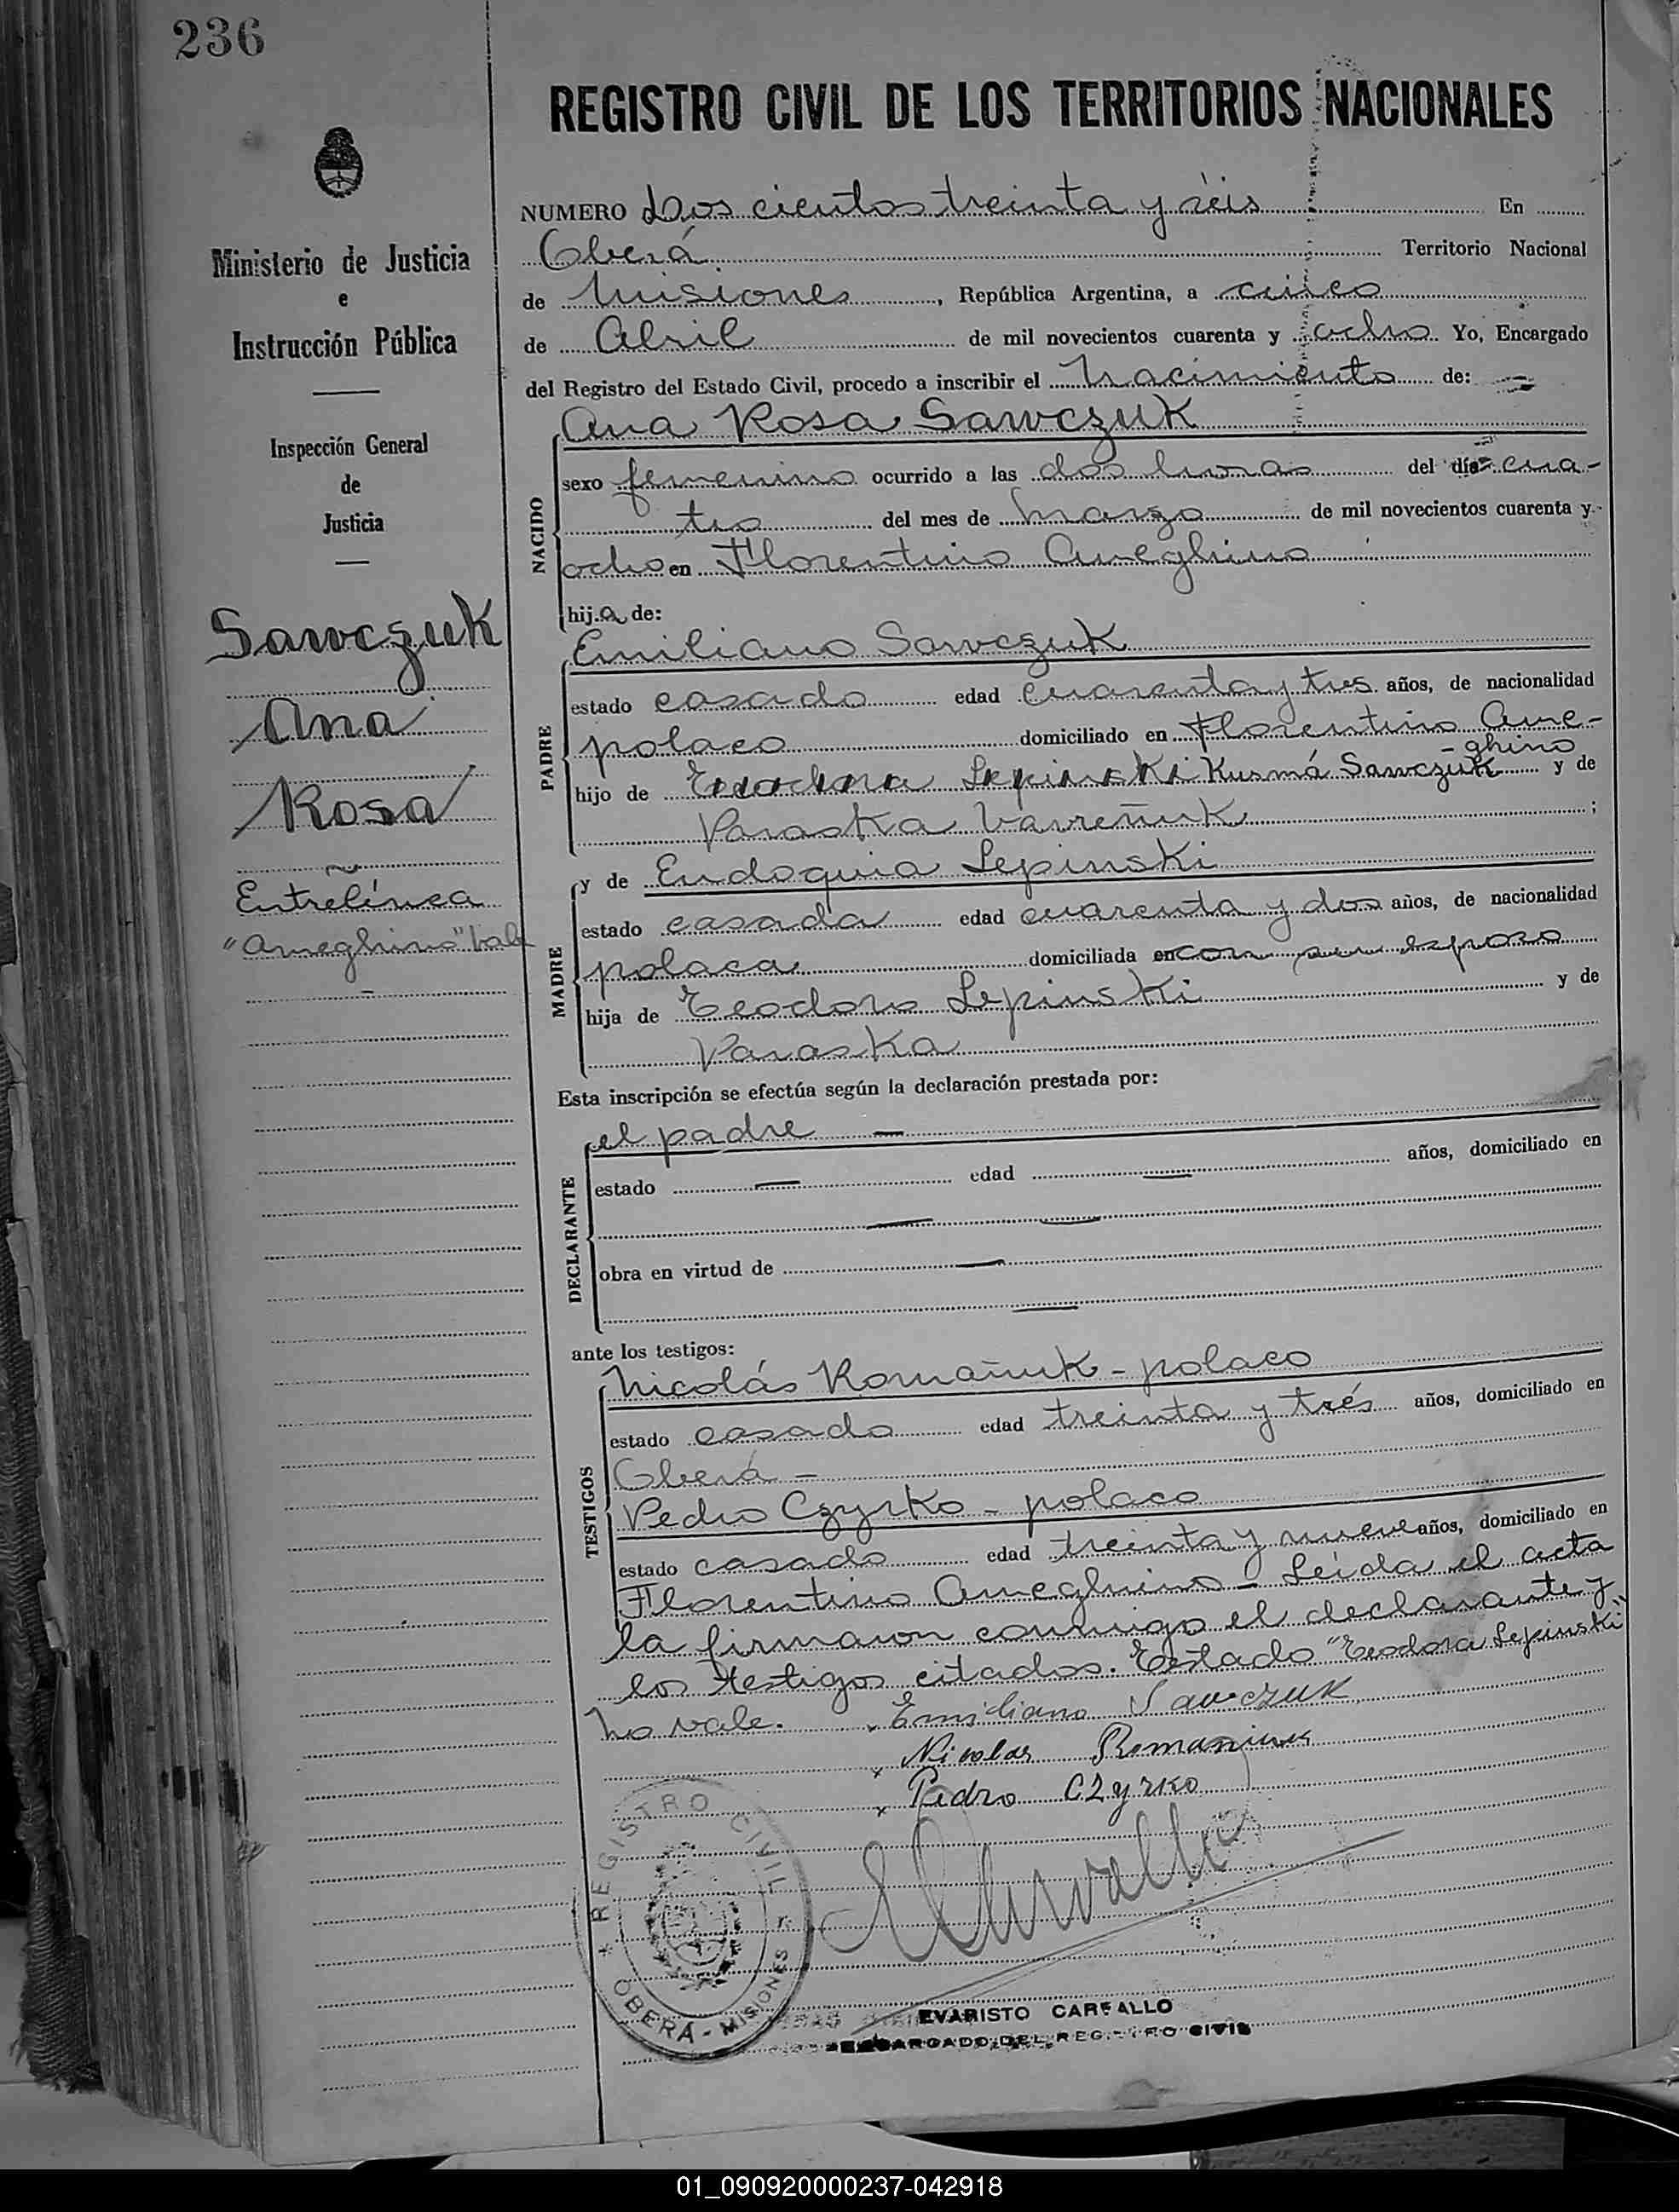 236
REGISTRO CIVIL DE LOS TERRITORIOS NACIONALES
Ministerio de Justicia
e
Instrucción Pública
Inspección General
de
Justicia
Sawczuk
Ana
Rosa
Entrelínea
"Ameghino" vale
NUMERO Dos cientos treinta y séis En
Oberá Territorio Nacional
de Misiones, República Argentina, a cinco
de Abril de mil novecientos cuarenta y ocho Yo, Encargado
del Registro del Estado Civil, procedo a inscribir el Nacimiento de:
Ana Rosa Sawczuk
NACIDO
sexo femenino ocurrido a las dos horas del día cua-
tro del mes de Marzo de mil novecientos cuarenta y
ocho en Florentino Ameghino
hija de:
Emiliano Sawczuk
PADRE
estado casado edad cuarenta y tres años, de nacionalidad
polaco domiciliado en Florentino Ame-
-ghino
hijo de Lepinski Kusmá Sawczuk y de
Paraska
y de Eudoquia Lepinski
MADRE
estado casada edad cuarenta y dos años, de nacionalidad
polaca domiciliada en con su esposo
hija de Teodoro Lepinski y de
Paraska
Esta inscripción se efectúa según la declaración prestada por:
el padre —
DECLARANTE
estado — edad — años, domiciliado en
— —
obra en virtud de —
—
ante los testigos:
TESTIGOS
Nicolás Romañuk - polaco
estado casado edad treinta y trés años, domiciliado en
Oberá -
Pedro Czyrko - polaco
estado casado edad treinta y nueve años, domiciliado en
Florentino Ameghino - Leída el acta
la firmaron conmigo el declarante y
los testigos citados. Testado "Teodora Lepinski"
No vale. Emiliano Sawczuk
Nicolas Romaniuk
Pedro Czyrko
REGISTRO CIVIL
OBERÁ - MISIONES
EVARISTO CARFALLO
ENCARGADO DEL REGISTRO CIVIL
01_090920000237-042918